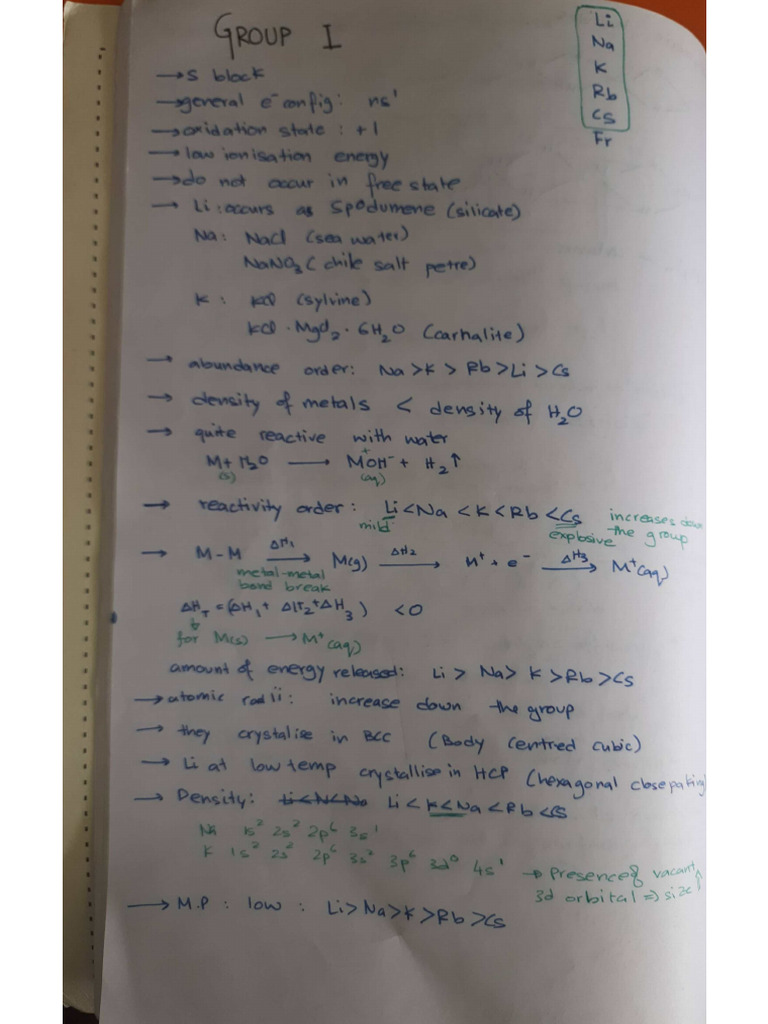 GROUP I
Li
Na
K
Rb
Cs
Fr
→ s block
→ general e⁻ config: ns¹
→ oxidation state : +1
→ low ionisation energy
→ do not occur in free state
→ Li : occurs as Spodumene (silicate)
Na : NaCl (sea water)
NaNO₃ ( chile salt petre)
K : KCl (sylvine)
KCl · MgCl₂ · 6H₂O (carnalite)
→ abundance order: Na > K > Rb > Li > Cs
→ density of metals < density of H₂O
→ quite reactive with water
M + H₂O → M⁺OH⁻ + H₂↑
(s) (aq)
→ reactivity order : Li < Na < K < Rb < Cs increases down
mild explosive the group
→ M - M ΔH₁ → M(g) ΔH₂ → M⁺ + e⁻ ΔH₃ → M⁺(aq)
metal-metal
bond break
ΔH_T = (ΔH₁ + ΔH₂ + ΔH₃) < 0
for M(s) → M⁺(aq)
amount of energy released: Li > Na > K > Rb > Cs
→ atomic radii : increase down the group
→ they crystalise in BCC (Body centred cubic)
→ Li at low temp crystallise in HCP (hexagonal close paking)
→ Density: Li < K < Na < Rb < Cs
Na 1s² 2s² 2p⁶ 3s¹
K 1s² 2s² 2p⁶ 3s² 3p⁶ 3d⁰ 4s¹ → Presence of vacant
3d orbital ⇒ size ↑
→ M.P : low : Li > Na > K > Rb > Cs